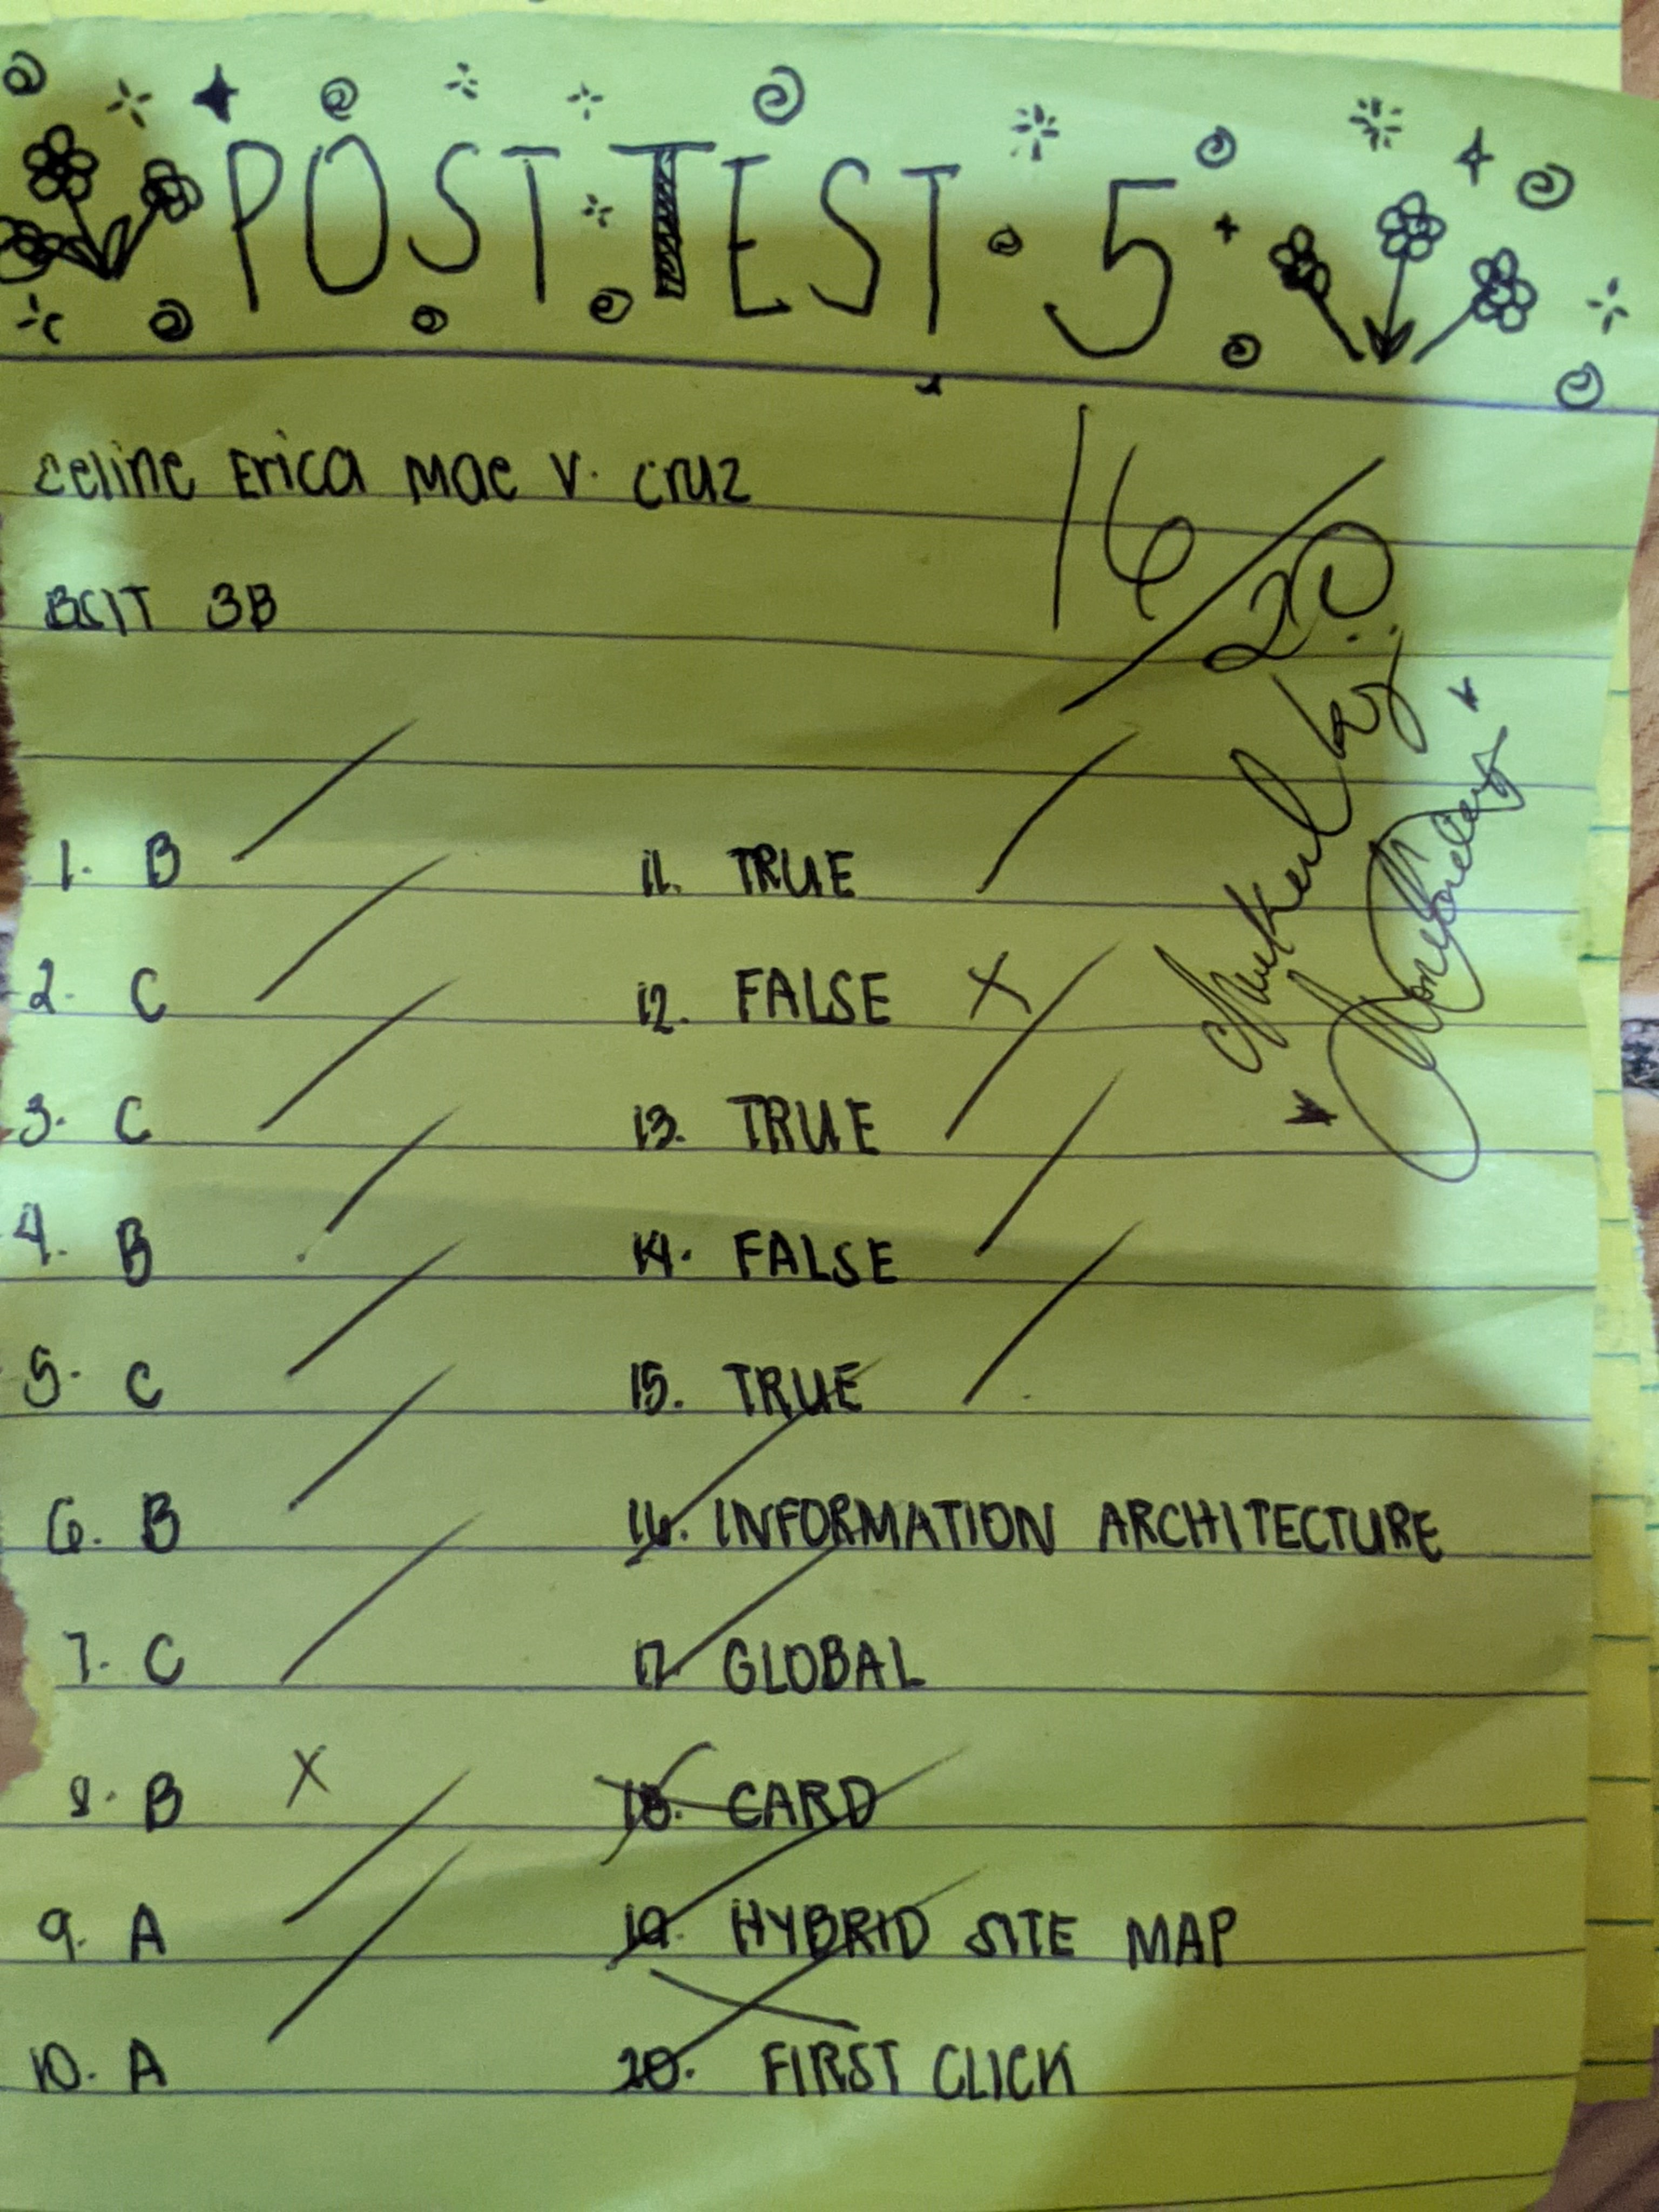 POST TEST 5
Celine Erica Mae V. Cruz
16/20
BSIT 3B
by:
1. B
2. C
3. C
4. B
5. C
6. B
7. C
8. B
9. A
10. A
11. TRUE
12. FALSE
13. TRUE
14. FALSE
15. TRUE
16. INFORMATION ARCHITECTURE
17. GLOBAL
18. CARD
19. HYBRID SITE MAP
20. FIRST CLICK